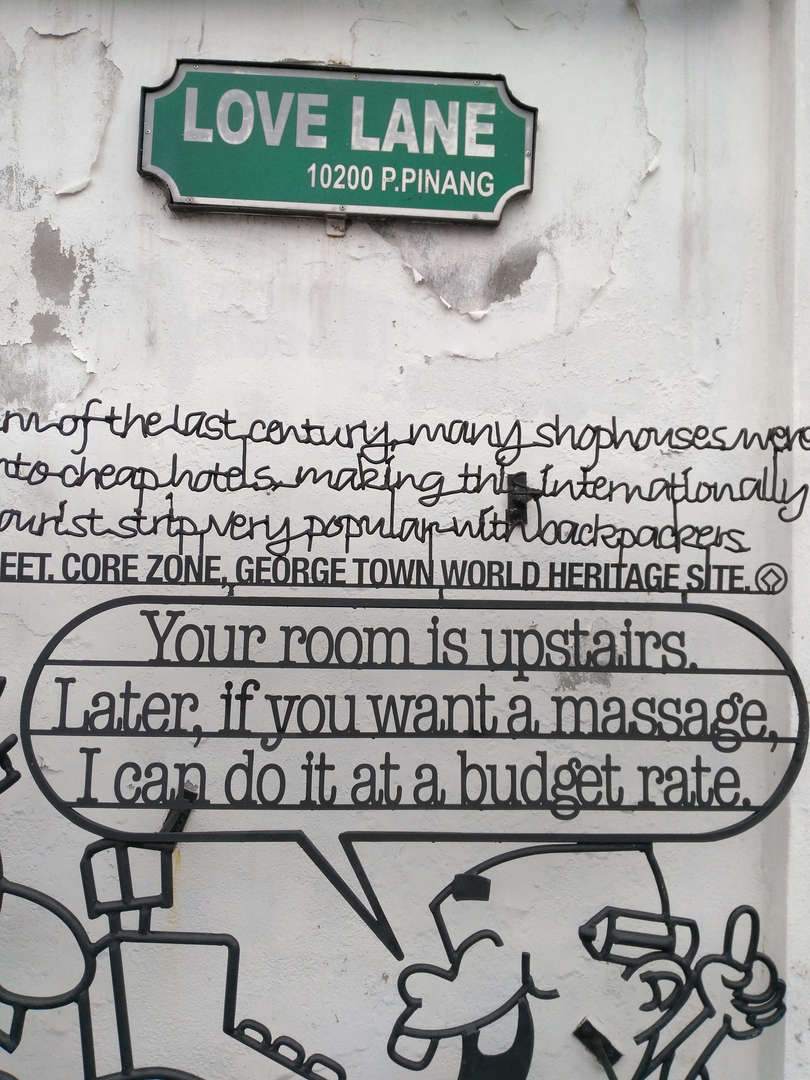 LOVE LANE
10200 P.PINANG
of the last century, many shophouses were
cheap hotels, making this internationally
strip very popular with backpackers.
EET. CORE ZONE, GEORGE TOWN WORLD HERITAGE SITE.
Your room is upstairs.
Later, if you want a massage,
I can do it at a budget rate.